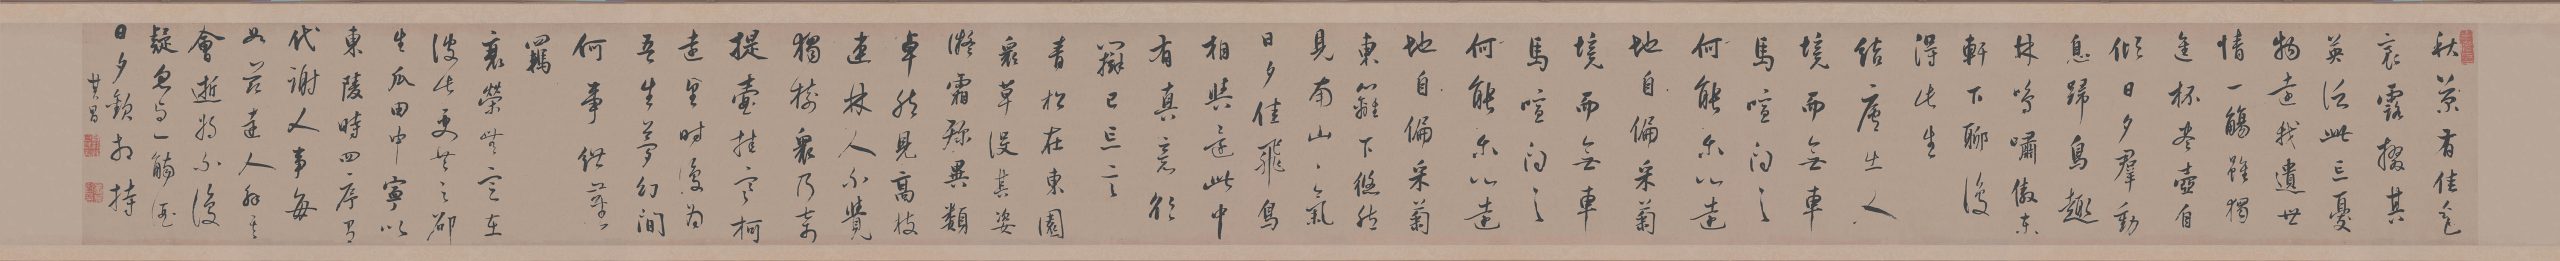 秋菊有佳色
裛露掇其
英泛此忘憂
物遠我遺世
情一觴雖獨
進杯盡壺自
傾日夕羣動
息歸鳥趨
林鳴嘯傲東
軒下聊復
得此生
結廬在人
境而無車
馬喧問君
何能尔心遠
地自偏采菊
境而無車
馬喧問君
何能尔心遠
地自偏采菊
東籬下悠然
見南山〻氣
日夕佳飛鳥
相與還此中
有真意欲
辯已忘言
青松在東園
衆草沒其姿
凝霜殄異類
卓然見高枝
連林人不覺
獨樹衆乃奇
提壺挂寒柯
遠望時復為
吾生夢幻間
何事紲塵
羈
衰榮無定在
彼此更共之邵
生瓜田中寧似
東陵時四序有
代謝人事每
如茲達人解其
會逝將不復
疑忽與一觴酒
日夕歡相持
其昌